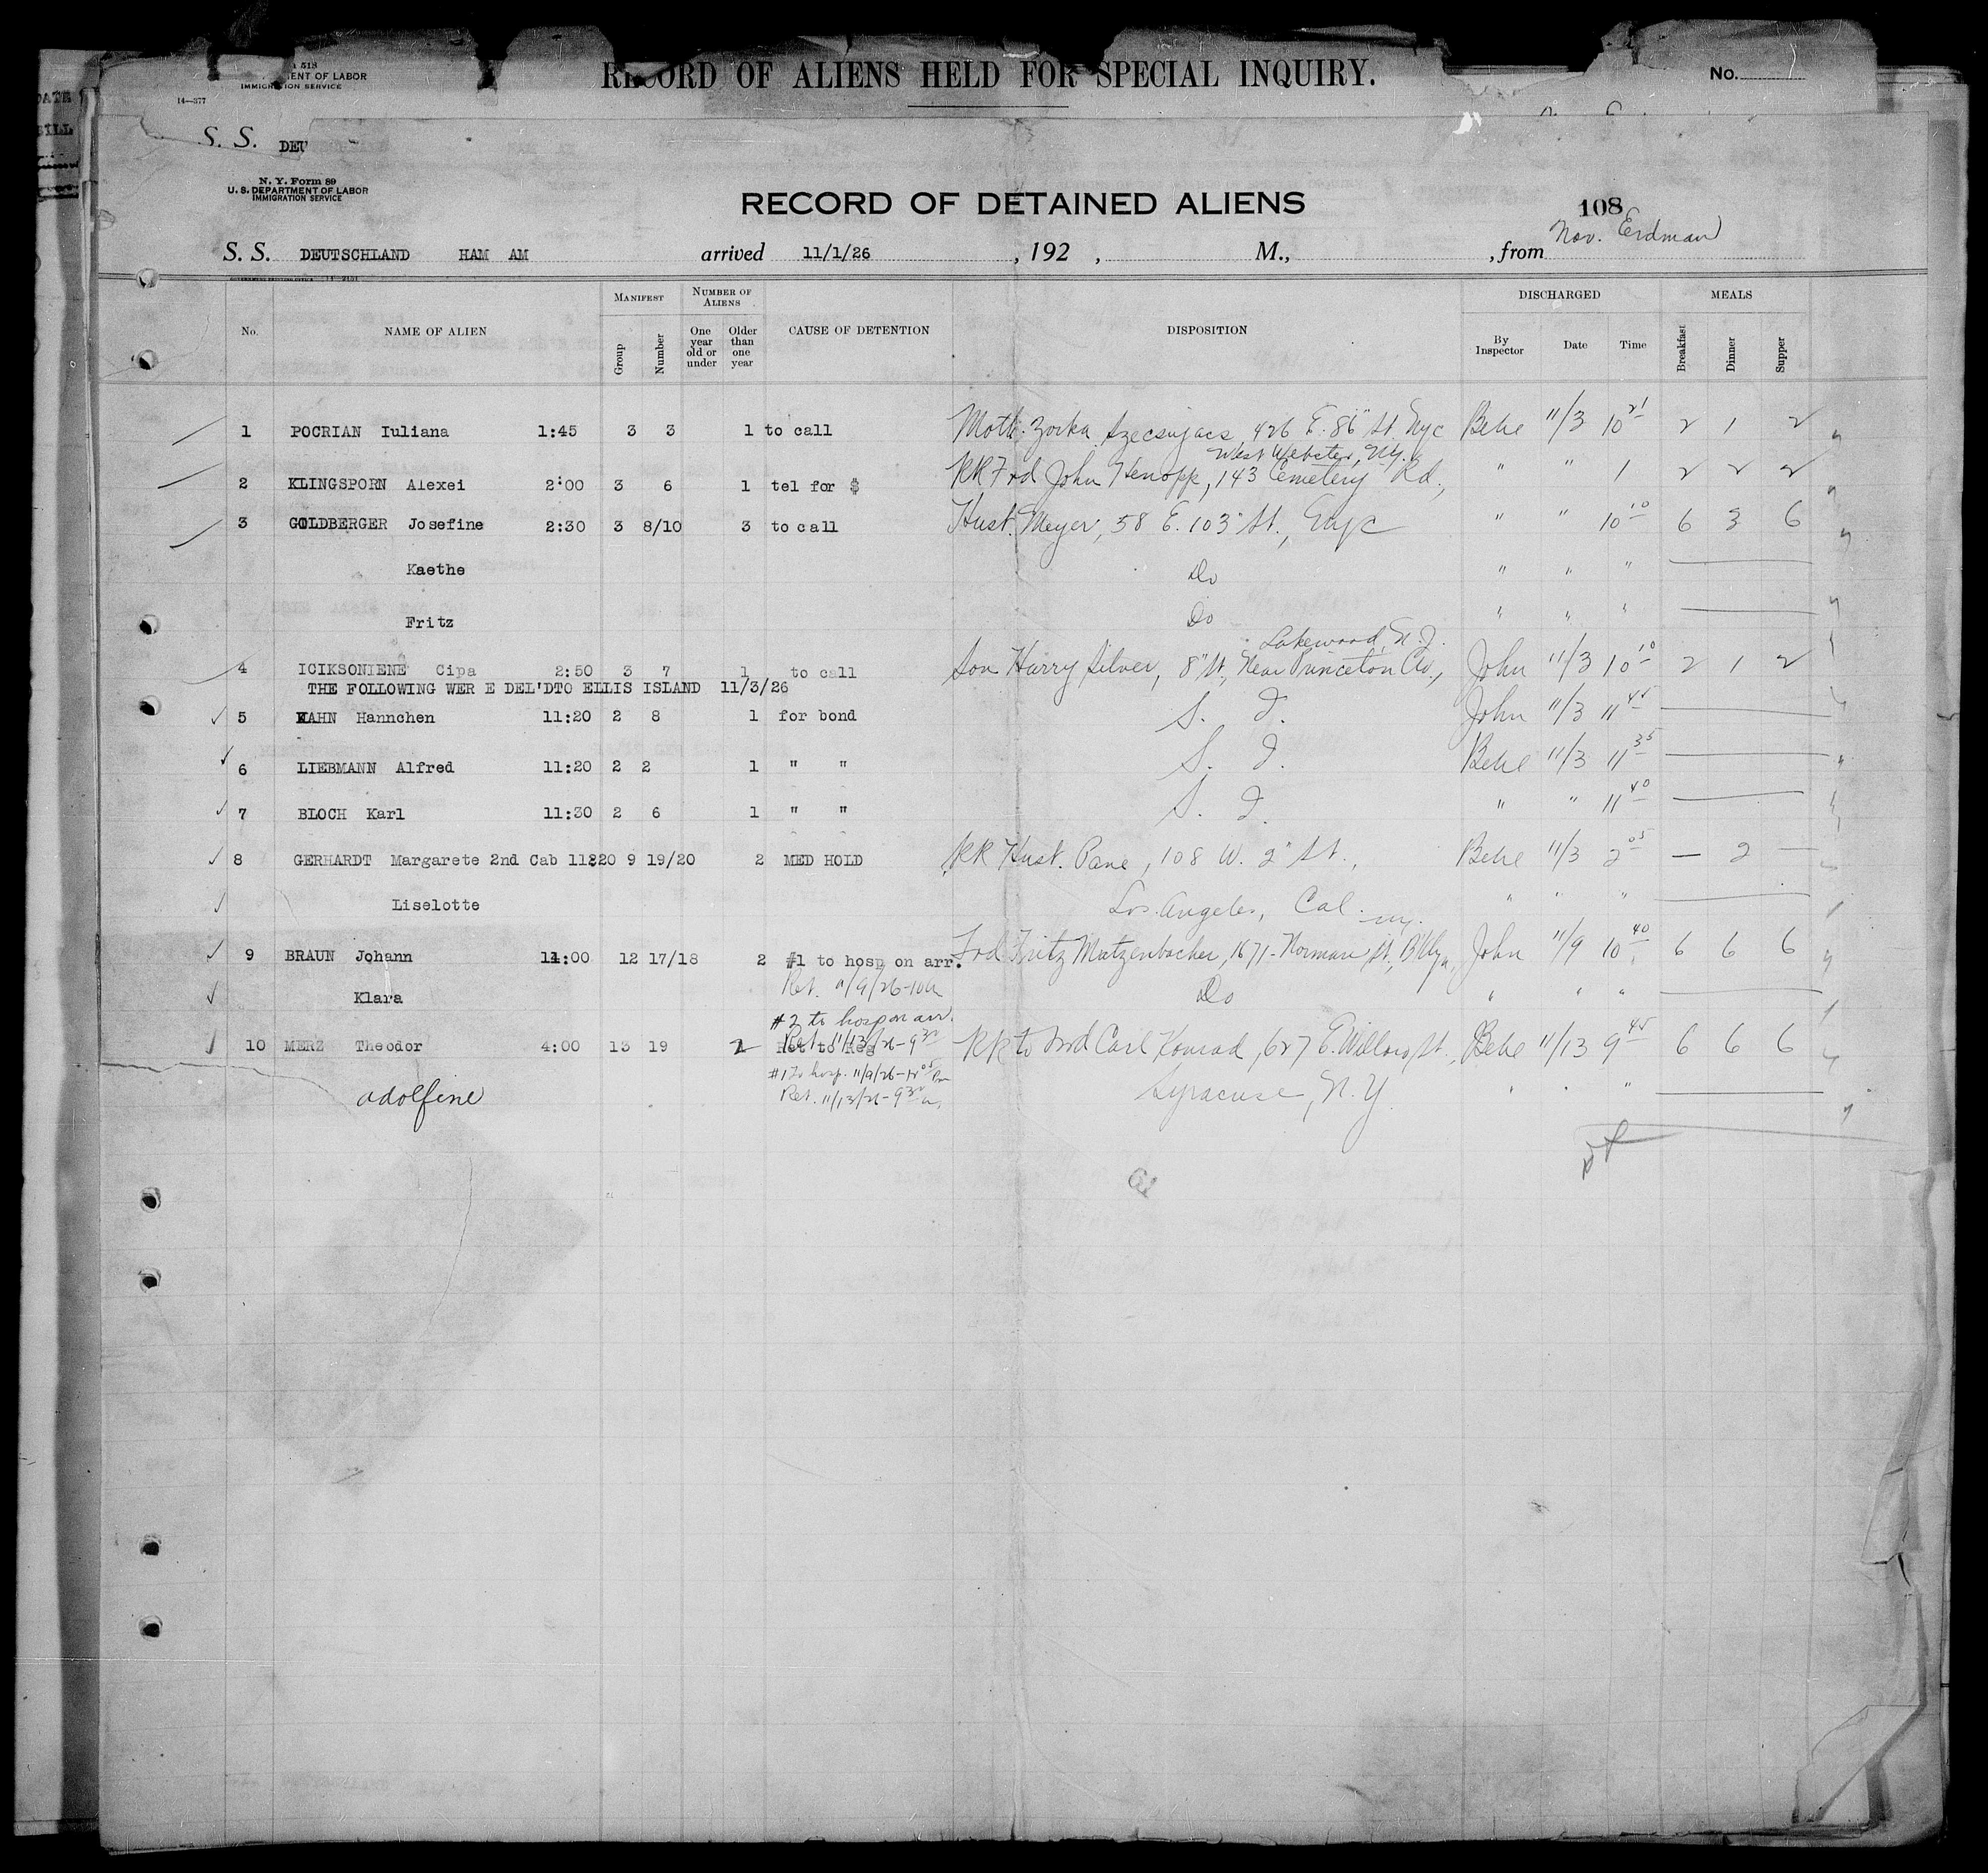 518
ENT OF LABOR
IMMIGRATION SERVICE
14—377
RECORD OF ALIENS HELD FOR SPECIAL INQUIRY.
No.
S. S. DEU
N. Y. Form 89
U. S. DEPARTMENT OF LABOR
IMMIGRATION SERVICE
RECORD OF DETAINED ALIENS
108
Nov. Erdman
S. S. DEUTSCHLAND HAM AM arrived 11/1/26, 192 , M., , from
No. NAME OF ALIEN MANIFEST Group Number NUMBER OF ALIENS One year old or under Older than one year CAUSE OF DETENTION DISPOSITION DISCHARGED By Inspector Date Time MEALS Breakfast Dinner Supper
1 POCRIAN Iuliana 1:45 3 3 1 to call Moth. Zorka 426 E. 86" St. Nyc Behe 11/3 10 2 1 2
West Webster, N.Y.
2 KLINGSPORN Alexei 2:00 3 6 1 tel for $ RR Frd John Henopp, 143 Cemetery Rd., " " 1 2 2 2
3 GOLDBERGER Josefine 2:30 3 8/10 3 to call Husb. Meyer, 58 E. 103" St., " " 10 10 6 3 6
Kaethe Do " " "
Fritz Do " " "
Lakewood, N. J.
4 ICIKSONIENE Cipa 2:50 3 7 1 to call Son Harry Silver, 8" St., Near Princeton Av., John 11/3 10 10 2 1 2
THE FOLLOWING WER E DEL'DTO ELLIS ISLAND 11/3/26
5 KAHN Hannchen 11:20 2 8 1 for bond S. I. John 11/3 11 45
6 LIEBMANN Alfred 11:20 2 2 1 " " S. I. Behe 11/3 11 35
7 BLOCH Karl 11:30 2 6 1 " " S. I. " " 11 40
8 GERHARDT Margarete 2nd Cab 11:20 9 19/20 2 MED HOLD RR Husb. 108 W. 2" St., Behe 11/3 2 05 — 2 —
Liselotte Los Angeles, Cal. " " "
9 BRAUN Johann 11:00 12 17/18 2 #1 to hosp on arr. Frd Fritz Matzenbacher, 1671 - Norman St., B'klyn, John 11/9 10 40 6 6 6
Klara Ret. 11/9/26-10a Do " " "
#2 to hosp on arr.
Ret. 11/13/26-9 30
10 MERZ Theodor 4:00 13 19 2 Ret to Reg RR to Frd Carl Konrad, 627 E. Willow St., Behe 11/13 9 45 6 6 6
#1 To hosp. 11/9/26-12 05 Pm
Adolfine Ret. 11/13/26-9 30 a. Syracuse, N. Y. " " "